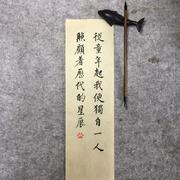 從童年起我便獨自一人
照顧着歷代的星辰